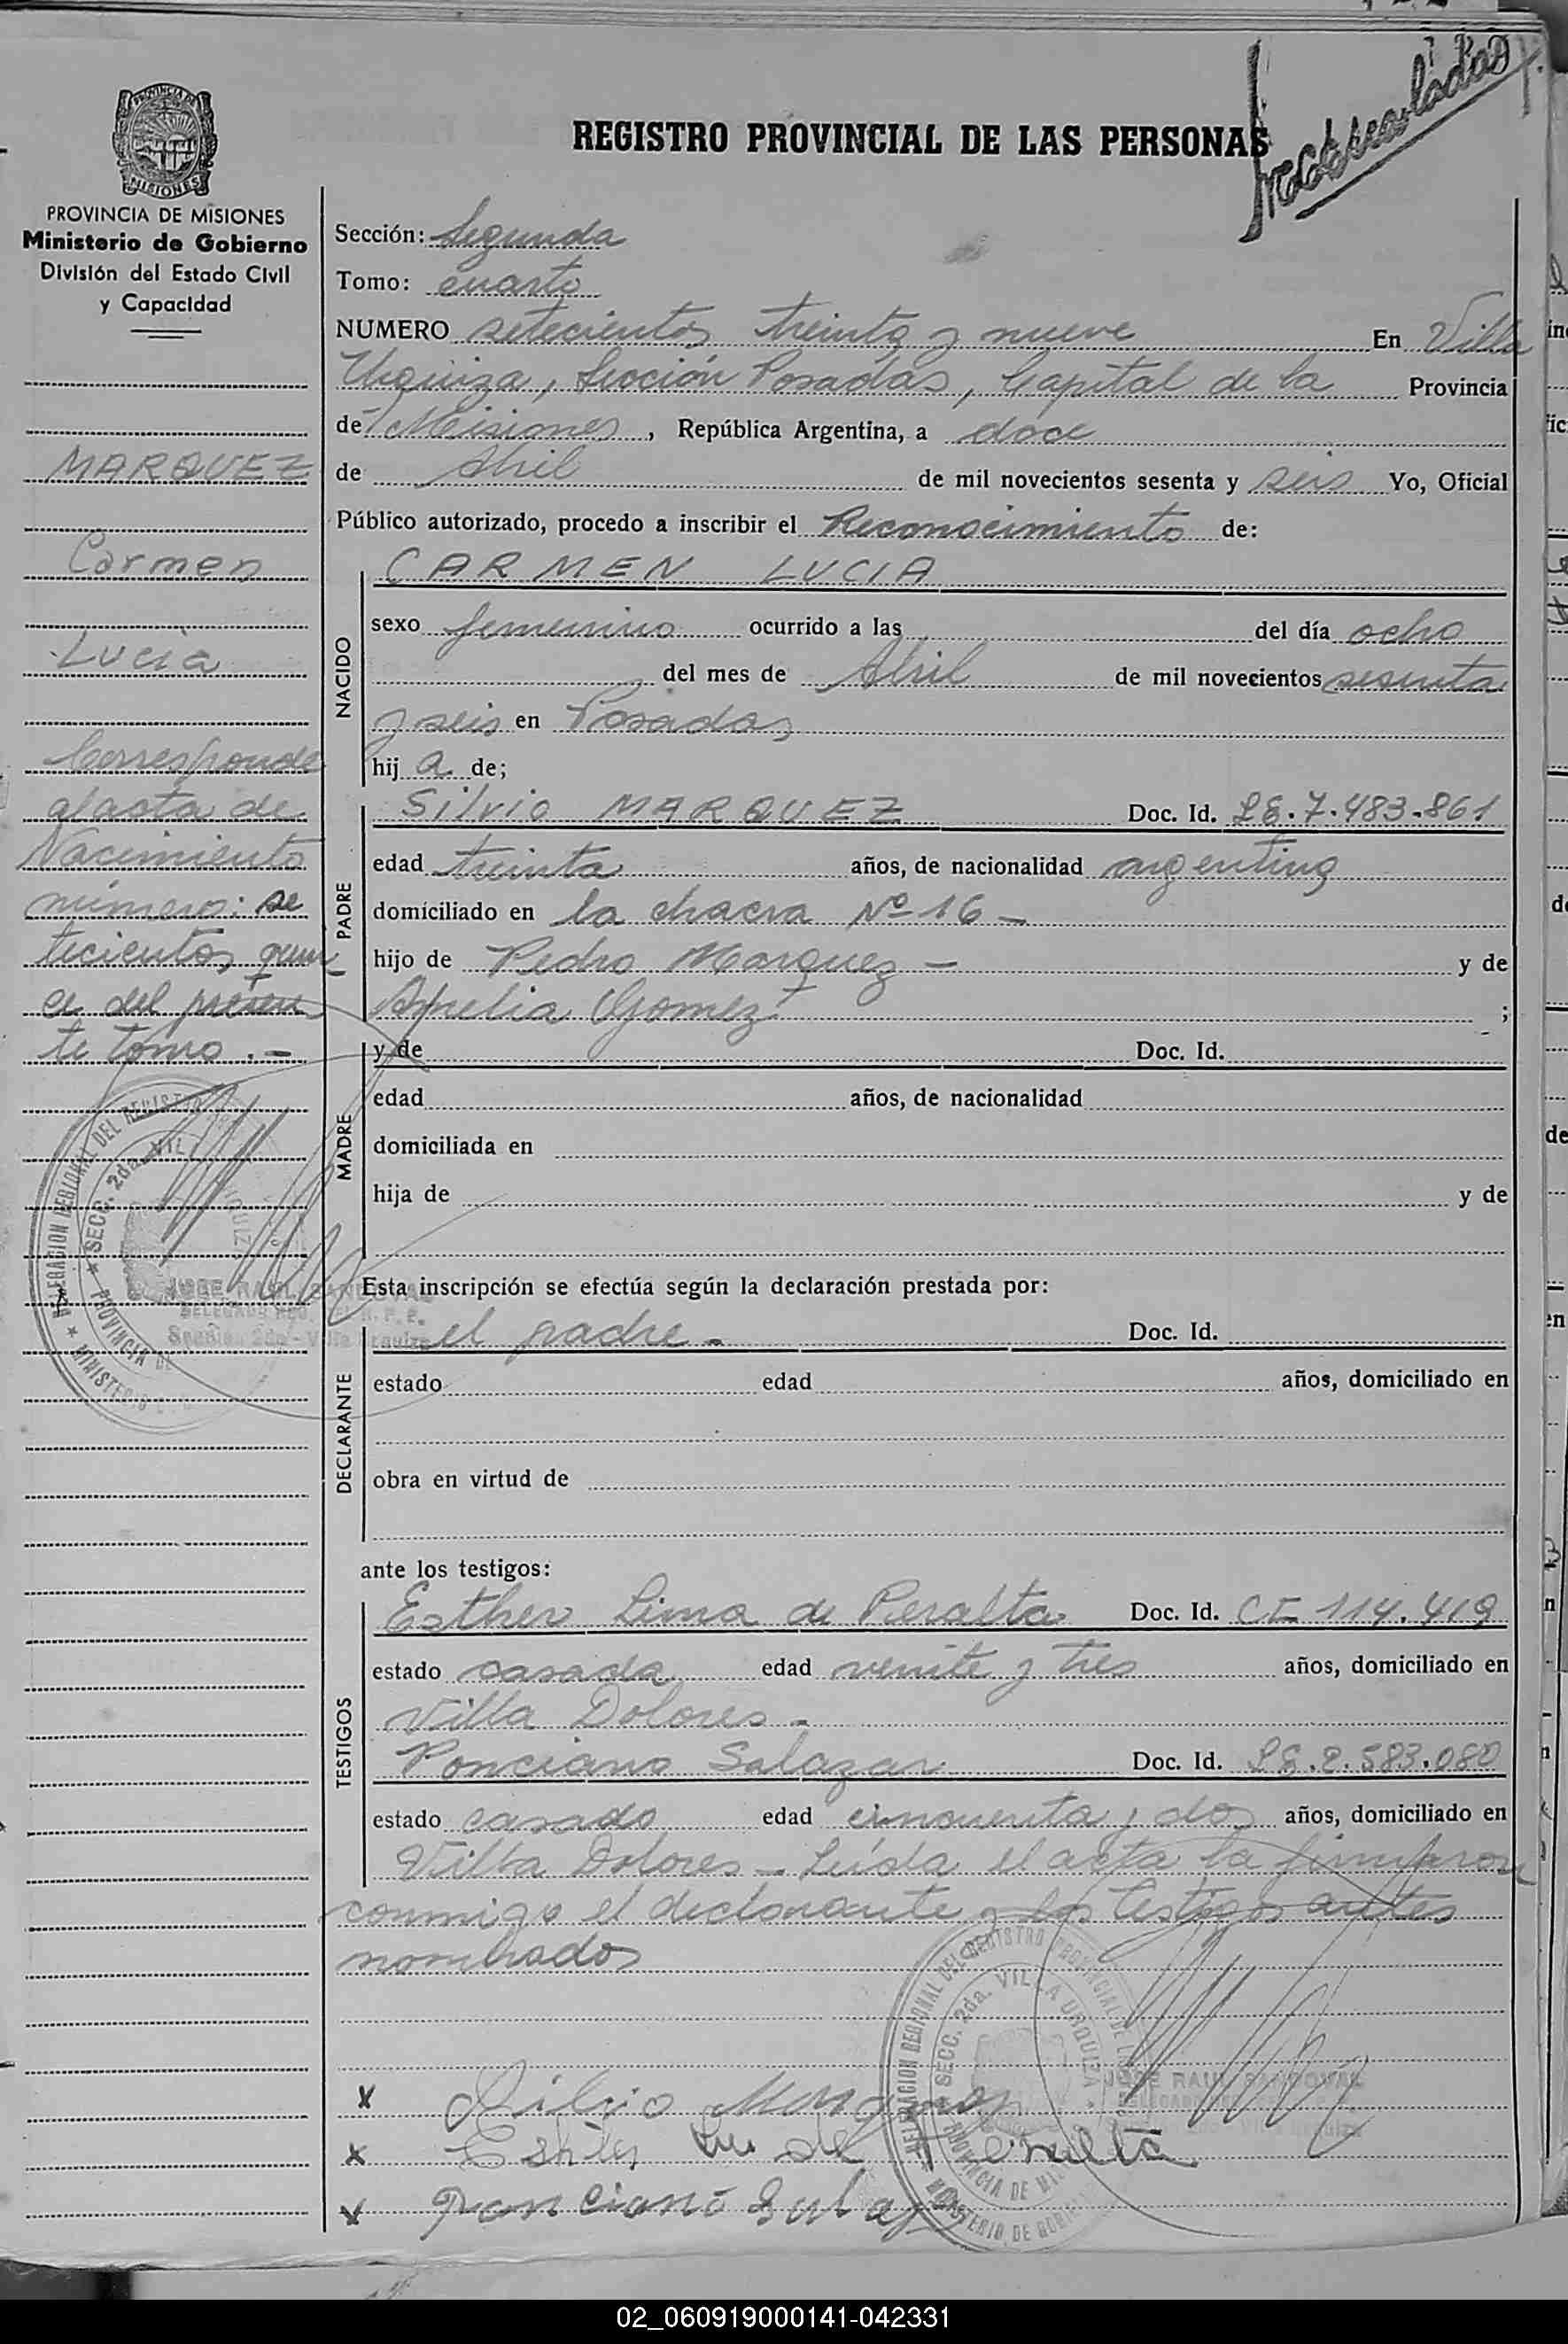 REGISTRO PROVINCIAL DE LAS PERSONAS
PROVINCIA DE MISIONES
Ministerio de Gobierno
División del Estado Civil
y Capacidad
MARQUEZ
Carmen
Lucia
Corresponde
al acta de
Nacimiento
número: se
tecientos quin
ce del presen
te tomo.-
Sección: Segunda
Tomo: cuarto
NUMERO setecientos treinta y nueve En Villa
Urquiza, Sección Posadas, Capital de la Provincia
de Misiones, República Argentina, a doce
de Abril de mil novecientos sesenta y seis Yo, Oficial
Público autorizado, procedo a inscribir el Reconocimiento de:
NACIDO
CARMEN LUCIA
sexo femenino ocurrido a las del día ocho
del mes de Abril de mil novecientos sesenta
y seis en Posadas
hij a de;
PADRE
Silvio MARQUEZ Doc. Id. LE.7.483.861
edad treinta años, de nacionalidad argentino
domiciliado en la chacra Nº 16 -
hijo de Pedro Marquez - y de
Gomez ;
MADRE
y de Doc. Id.
edad años, de nacionalidad
domiciliada en
hija de y de
Esta inscripción se efectúa según la declaración prestada por:
DECLARANTE
el padre - Doc. Id.
estado edad años, domiciliado en
obra en virtud de
ante los testigos:
TESTIGOS
Esther Lima de Peralta Doc. Id. CI 114.419
estado casada edad veinte y tres años, domiciliado en
Villa Dolores -
Ponciano Salazar Doc. Id. LE.2.583.080
estado casado edad cincuenta y dos años, domiciliado en
Villa Dolores - Leída el acta la firmaron
conmigo el declarante y los testigos antes
nombrados
DELEGACION REGIONAL DEL REGISTRO PROVINCIAL DE
SECC. 2da. VILLA URQUIZA
PROVINCIA DE
MINISTERIO DE
JOSE RAUL SANDOVAL
x Silvio
x de Peralta
x Ponciano
02_060919000141-042331